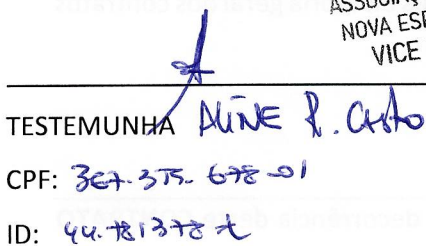 ASSOCIAÇ
NOVA ESP
VICE
TESTEMUNHA ALINE R. Casto
CPF: 367.375.678-01
ID: 44.781378-X